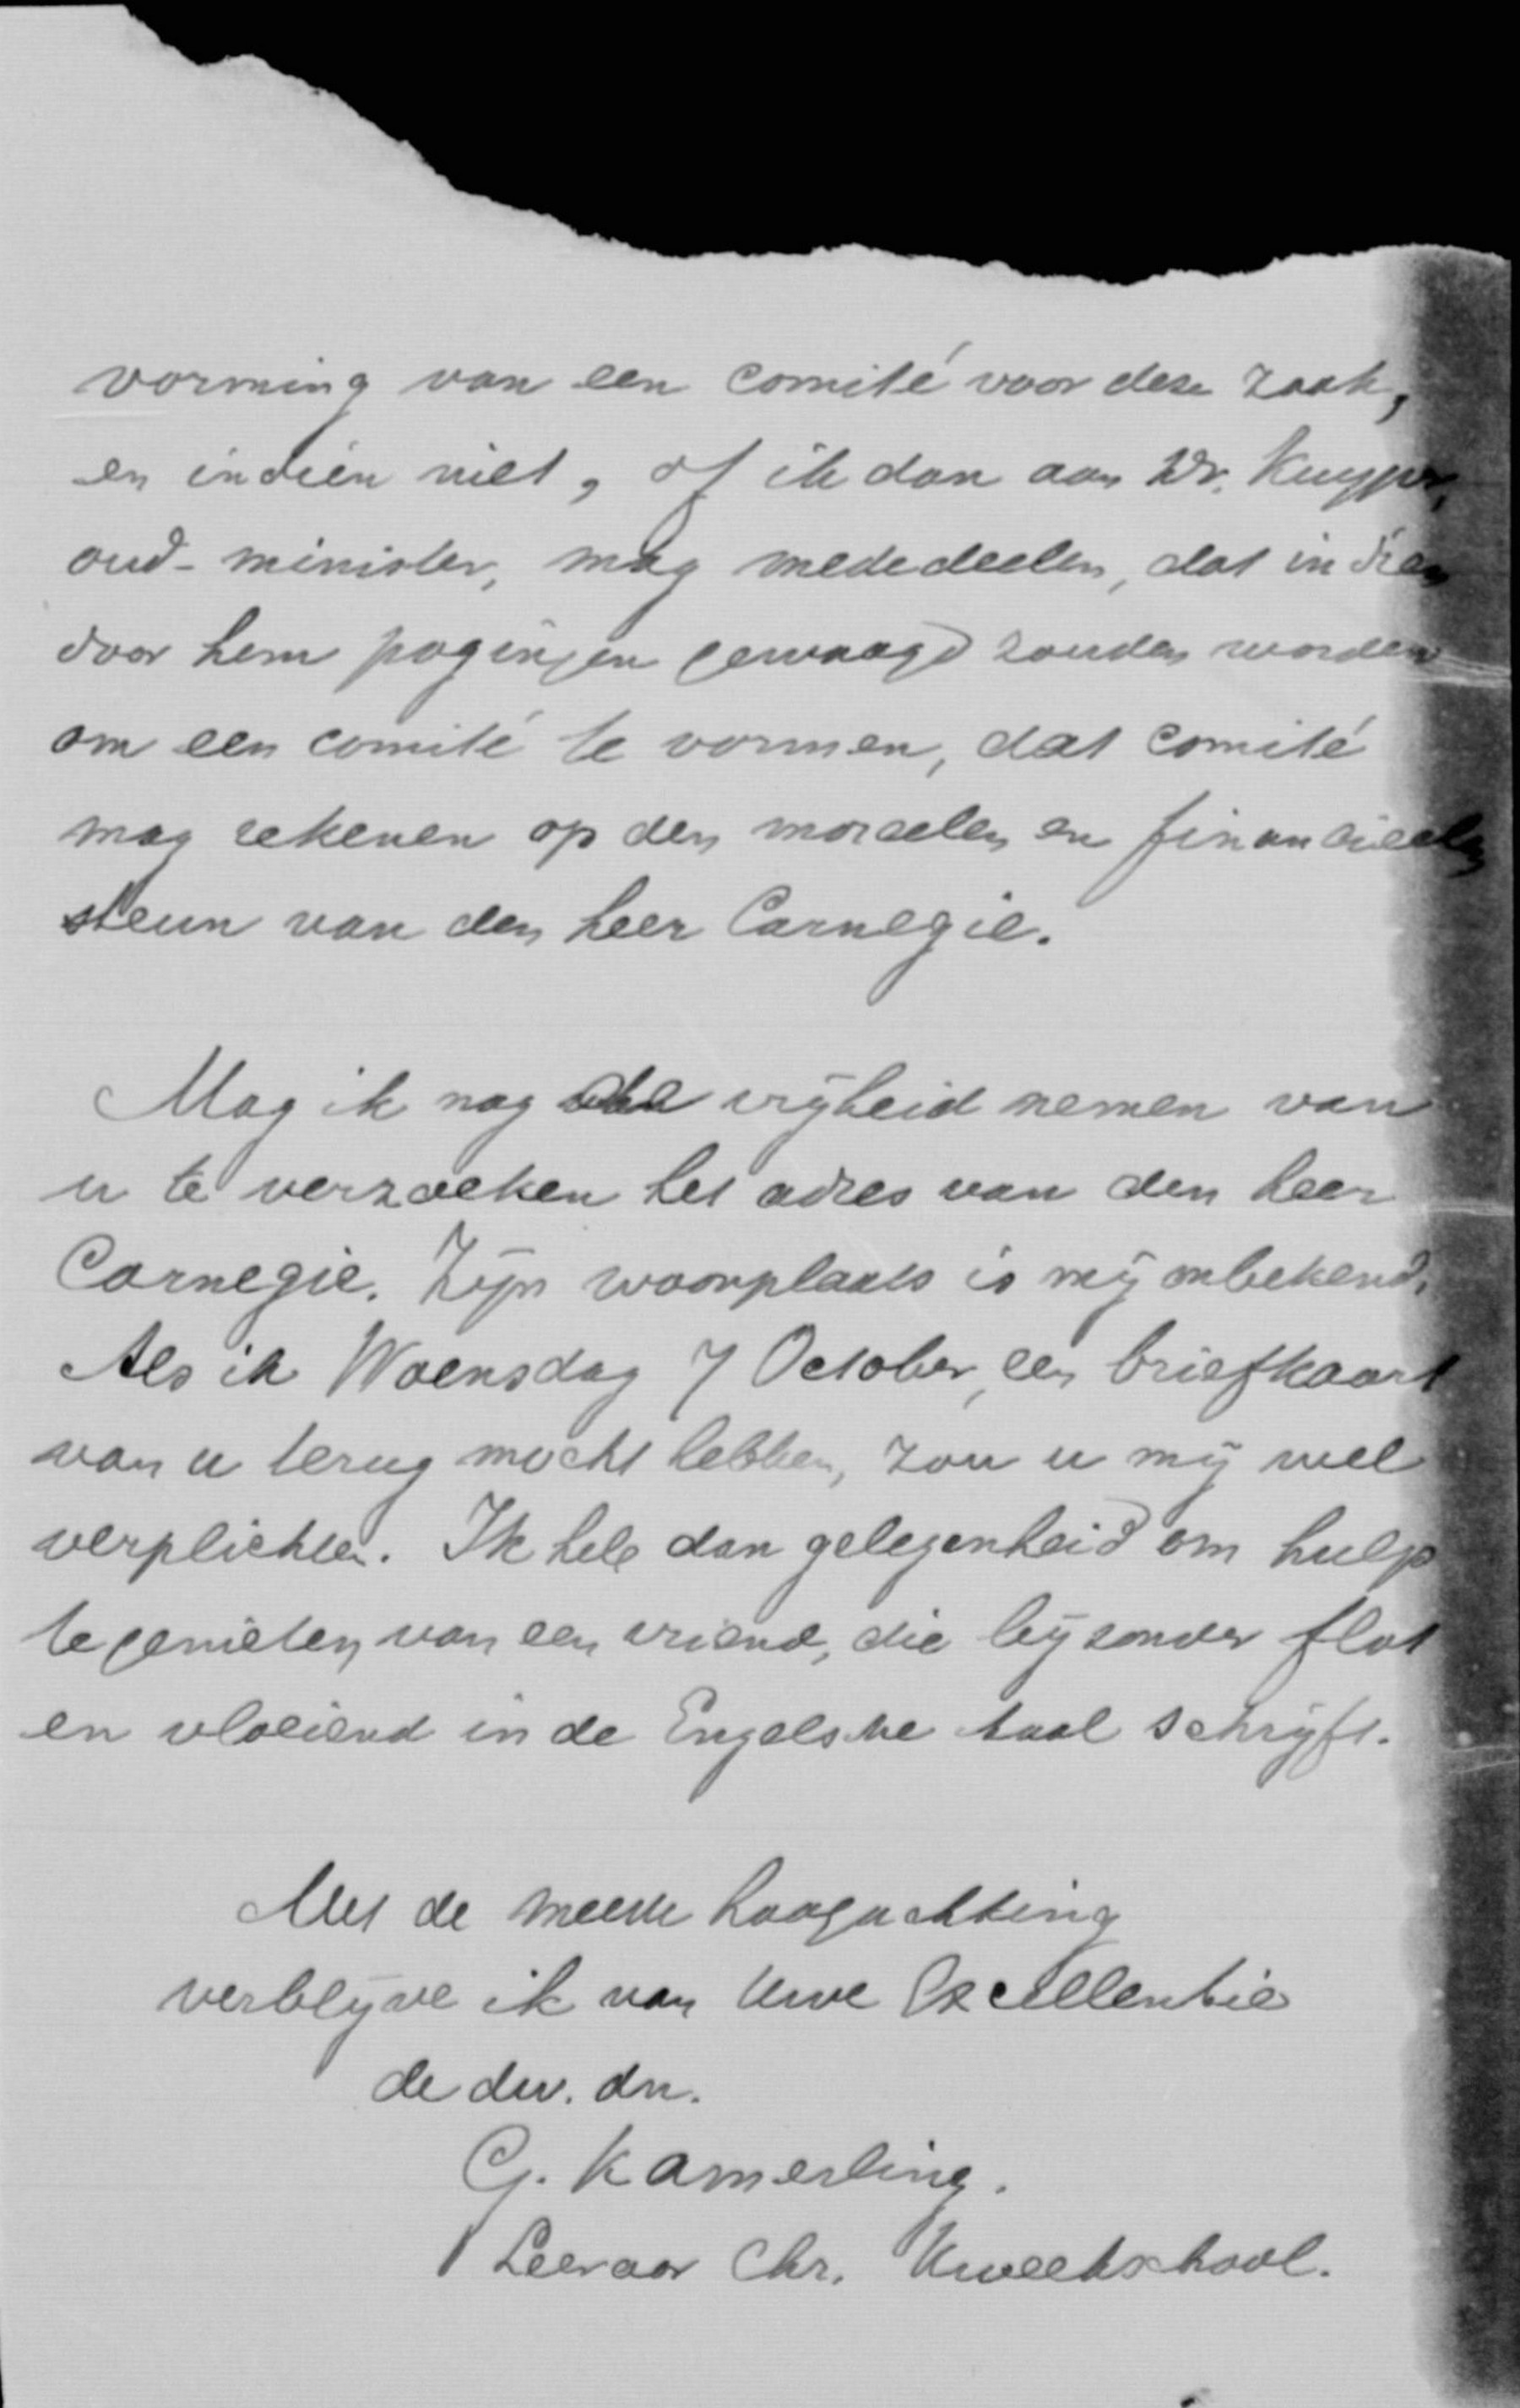 vorming van een comité voor deze zaak,
en indien niet, of ik dan aan Dr. Kuyper,
oud-minister, mag mededeelen, dat indien
door hem pogingen gewaagd zouden worden
om een comité te vormen, dat comité
mag rekenen op den moreelen en financieelen
steun van den heer Carnegie.
Mag ik nog de vrijheid nemen van
u te verzoeken het adres van den heer
Carnegie. Zijn woonplaats is mij onbekend.
Als ik Woensdag 7 October, een briefkaart
van u terug mocht hebben, zou u mij wel
verplichten. Ik heb dan gelegenheid om hulp
te genieten van een vriend, die bijzonder flot
en vloeiend in de Engelsche taal schrijft.
Met de meeste hoogachting
verblijve ik van Uwe Excellentie
de dw. dn.
G. Kamerling.
Leeraar Chr. Kweekschool.